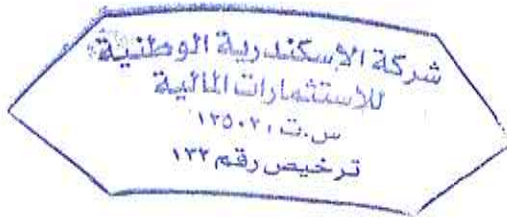 شركة الإسكندرية الوطنية
للاستثمارات المالية
س.ت ١٢٥٠٢٠
ترخيص رقم ١٣٢